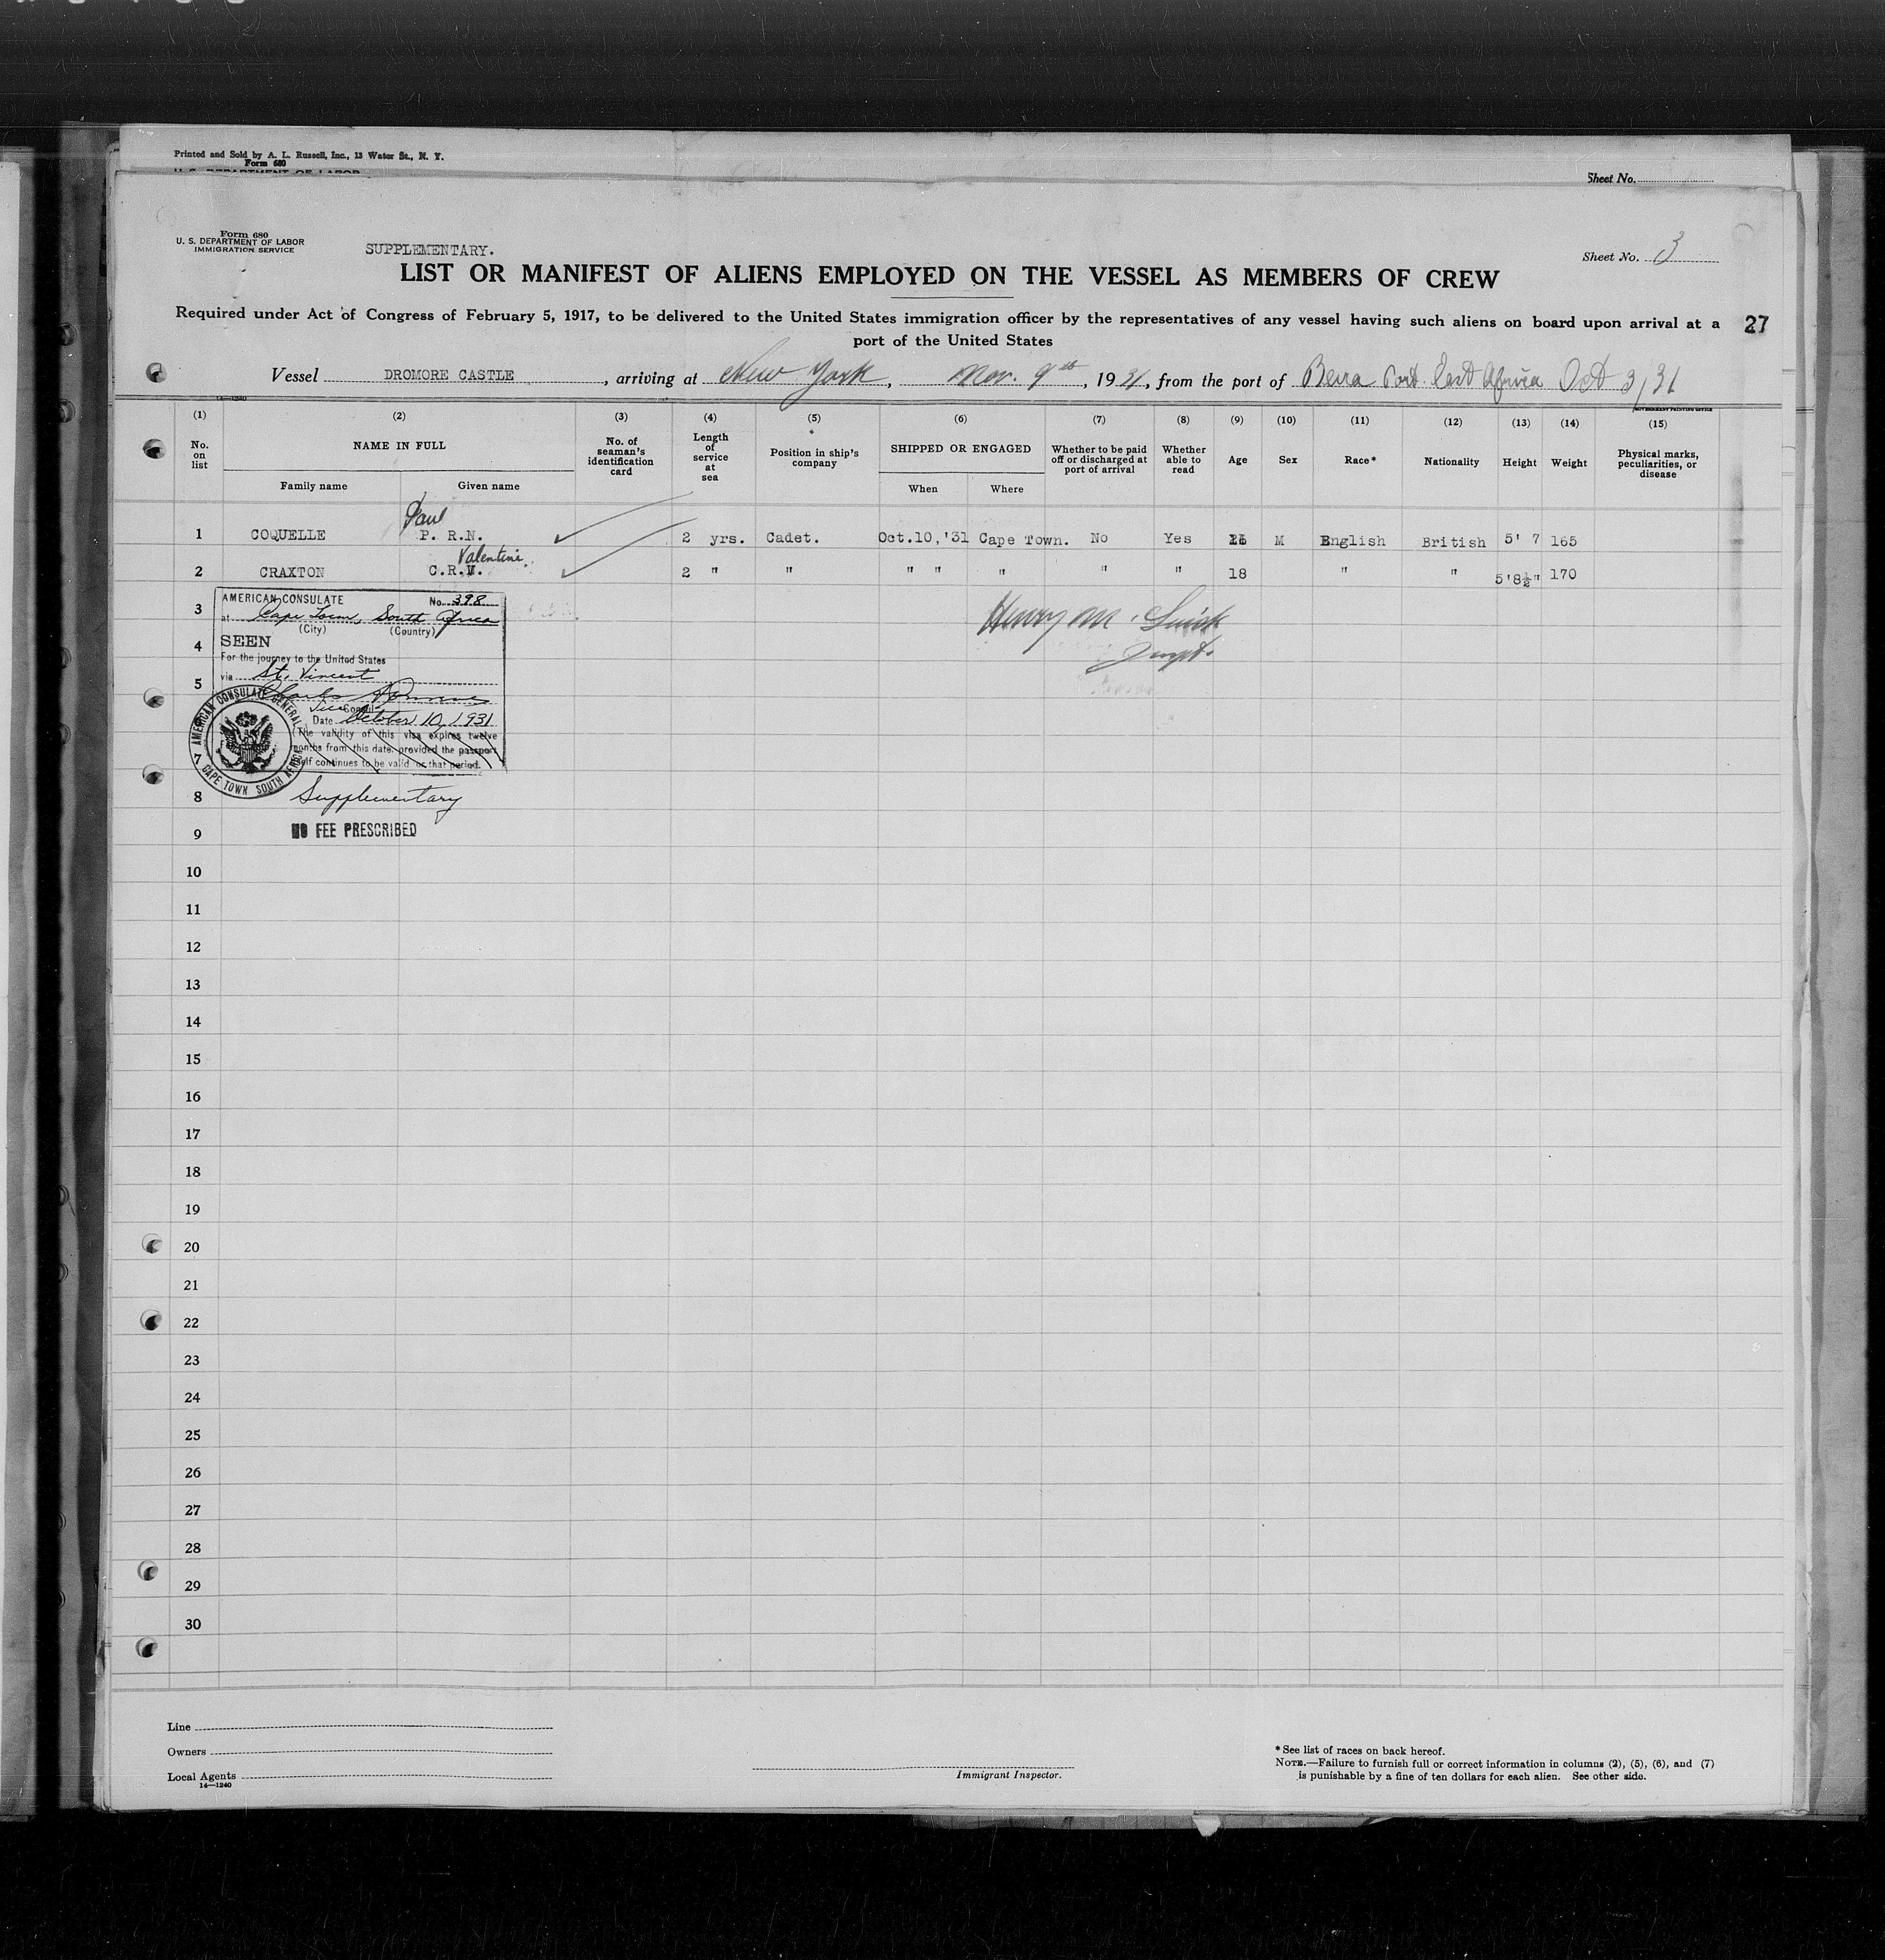 Printed and Sold by A. L. Russell, Inc., 13 Water St., N. Y.
Form 680
U. S. DEPARTMENT OF LABOR
Sheet No.
Form 680
U. S. DEPARTMENT OF LABOR
IMMIGRATION SERVICE
SUPPLEMENTARY.
Sheet No. 3
LIST OR MANIFEST OF ALIENS EMPLOYED ON THE VESSEL AS MEMBERS OF CREW
Required under Act of Congress of February 5, 1917, to be delivered to the United States immigration officer by the representatives of any vessel having such aliens on board upon arrival at a
port of the United States
27
Vessel DROMORE CASTLE, arriving at New York, Nov. 9th, 1931, from the port of Beira Port. East Africa Oct 3/31
14—1240
GOVERNMENT PRINTING OFFICE
(1) (2) (3) (4) (5) (6) (7) (8) (9) (10) (11) (12) (13) (14) (15)
No. on list NAME IN FULL No. of seaman's identification card Length of service at sea Position in ship's company SHIPPED OR ENGAGED Whether to be paid off or discharged at port of arrival Whether able to read Age Sex Race* Nationality Height Weight Physical marks, peculiarities, or disease
Family name Given name When Where
Paul
1 COQUELLE P. R.N. 2 yrs. Cadet. Oct.10,'31 Cape Town. No Yes M English British 5' 7 165
Valentine
2 CRAXTON C.R.V. 2 " " " " " " " 18 " " 5'8½" 170
AMERICAN CONSULATE No. 398
at Cape Town, South Africa
(City) (Country)
SEEN
For the journey to the United States
via St. Vincent
Vice Consul
Date October 10, 1931
(The validity of this visa expires twelve
months from this date, provided the passport
itself continues to be valid for that period.
AMERICAN CONSULATE GENERAL
CAPE TOWN SOUTH AFRICA
Supplementary
NO FEE PRESCRIBED
Henry M.
3
4
5
7
8
9
10
11
12
13
14
15
16
17
18
19
20
21
22
23
24
25
26
27
28
29
30
Line
Owners
Local Agents
14—1240
Immigrant Inspector.
* See list of races on back hereof.
NOTE.—Failure to furnish full or correct information in columns (2), (5), (6), and (7)
is punishable by a fine of ten dollars for each alien. See other side.